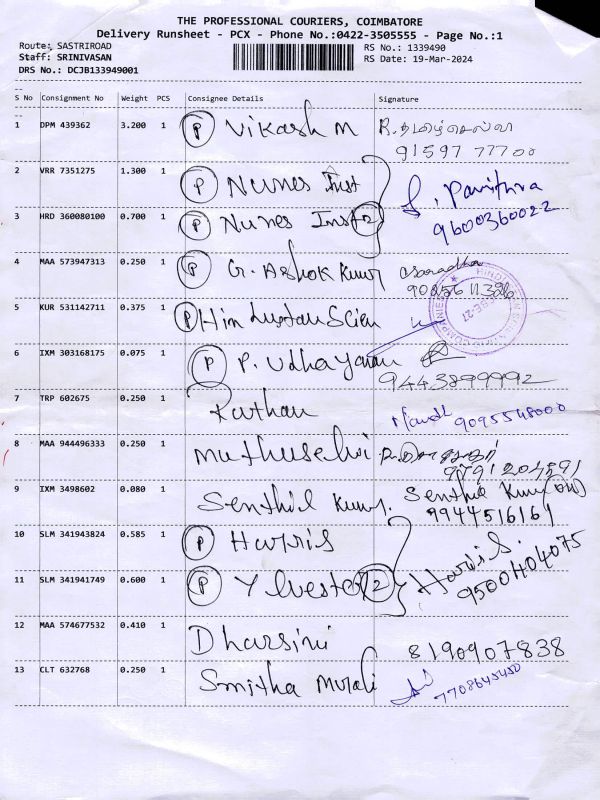 THE PROFESSIONAL COURIERS, COIMBATORE
Delivery Runsheet - PCX - Phone No.:0422-3505555 - Page No.:1
Route: SASTRIROAD
Staff: SRINIVASAN
DRS No.: DCJB133949001
RS No.: 1339490
RS Date: 19-Mar-2024
S No Consignment No Weight PCS Consignee Details Signature
1 DPM 439362 3.200 1 P Vikash M R. தமிழ்செல்வி
91597 77700
2 VRR 7351275 1.300 1 P Nunes Inst
S. Pavithra
3 HRD 360080100 0.700 1 P Nunes Inst 2 9600360022
4 MAA 573947313 0.250 1 P G. Ashok Kumar Saradha
5 KUR 531142711 0.375 1 P Hindustan Scien
6 IXM 303168175 0.075 1 P P. Udhayanan
9443899992
7 TRP 602675 0.250 1 9095548000
8 MAA 944496333 0.250 1 Muthuselvi
9791204591
9 IXM 3498602 0.080 1 Senthil Kumar. Senthil Kumar
9944516161
10 SLM 341943824 0.585 1 P Harris
Harris S.
11 SLM 341941749 0.600 1 P Ylvester 2 9500404075
12 MAA 574677532 0.410 1 Dharsini 8190907838
13 CLT 632768 0.250 1 Smitha Murali
7708645450